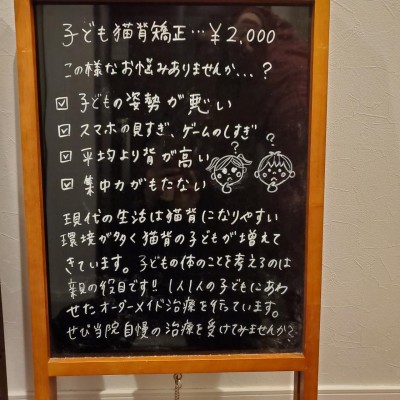 子ども猫背矯正…￥2,000
この様なお悩みありませんか...？
☑ 子どもの姿勢が悪い
☑ スマホの見すぎ、ゲームのしすぎ
☑ 平均より背が高い
☑ 集中力がもたない
？ ？
現代の生活は猫背になりやすい
環境が多く猫背の子どもが増えて
きています。子どもの体のことを考えるのは
親の役目です!! 1人1人の子どもにあわ
せたオーダーメイド治療を行っています。
ぜひ当院自慢の治療を受けてみませんか？